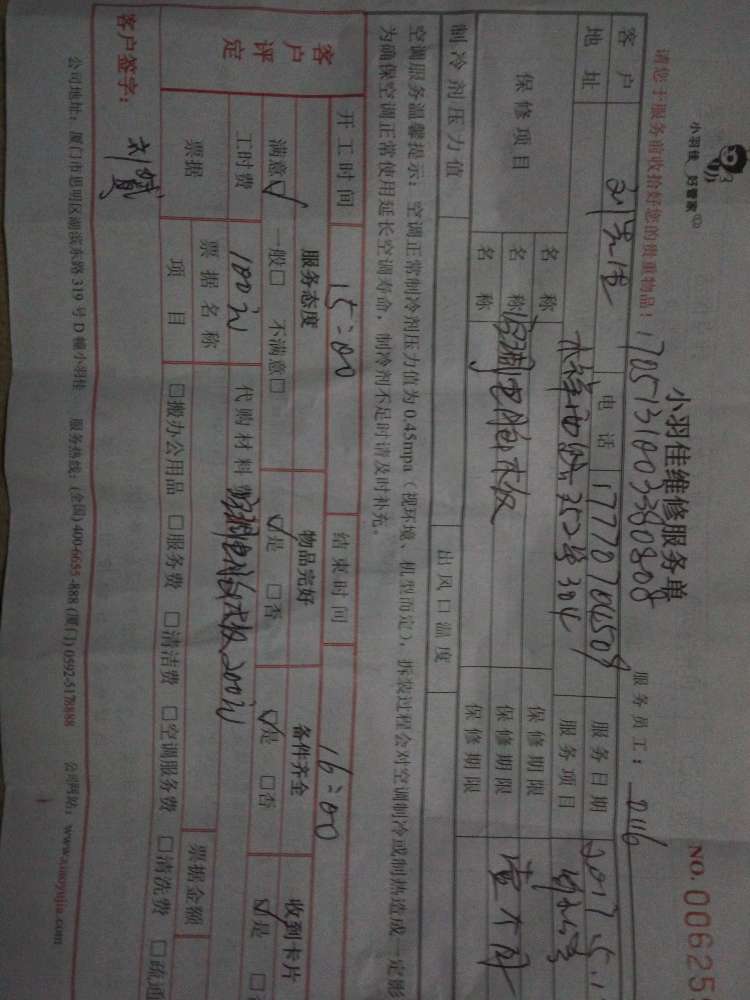 小羽佳 好管家
小羽佳维修服务单
NO. 00625
请您于服务前收拾好您的贵重物品！
1705131803380808
服务员工：
客户
电话
17770704509
服务日期
2017.5.
地址
352号304
服务项目
保修项目
名称
保修期限
名称
空调电脑板
保修期限
壹个月
名称
保修期限
制冷剂压力值
出风口温度
空调服务温馨提示：空调正常制冷剂压力值为0.45mpa（视环境、机型而定），拆装过程会对空调制冷或制热造成一定影
为确保空调正常使用延长空调寿命，制冷剂不足时请及时补充。
开工时间
15:00
结束时间
16:00
客户评定
服务态度
物品完好
备件齐全
收到卡片
满意☑ 一般□ 不满意□
☑是 □否
☑是 □否
☑是
工时费
100元
代购材料费
空调电脑板200元
票据
票据名称
票据金额
项目
□搬办公用品 □服务费 □清洁费 □空调服务费 □清洗费 □疏通
客户签字：
公司地址：厦门市思明区湖滨东路319号D幢小羽佳 服务热线：(全国)400-6655-888 (厦门)0592-5178888 公司网站：www.xiaoyujia.com